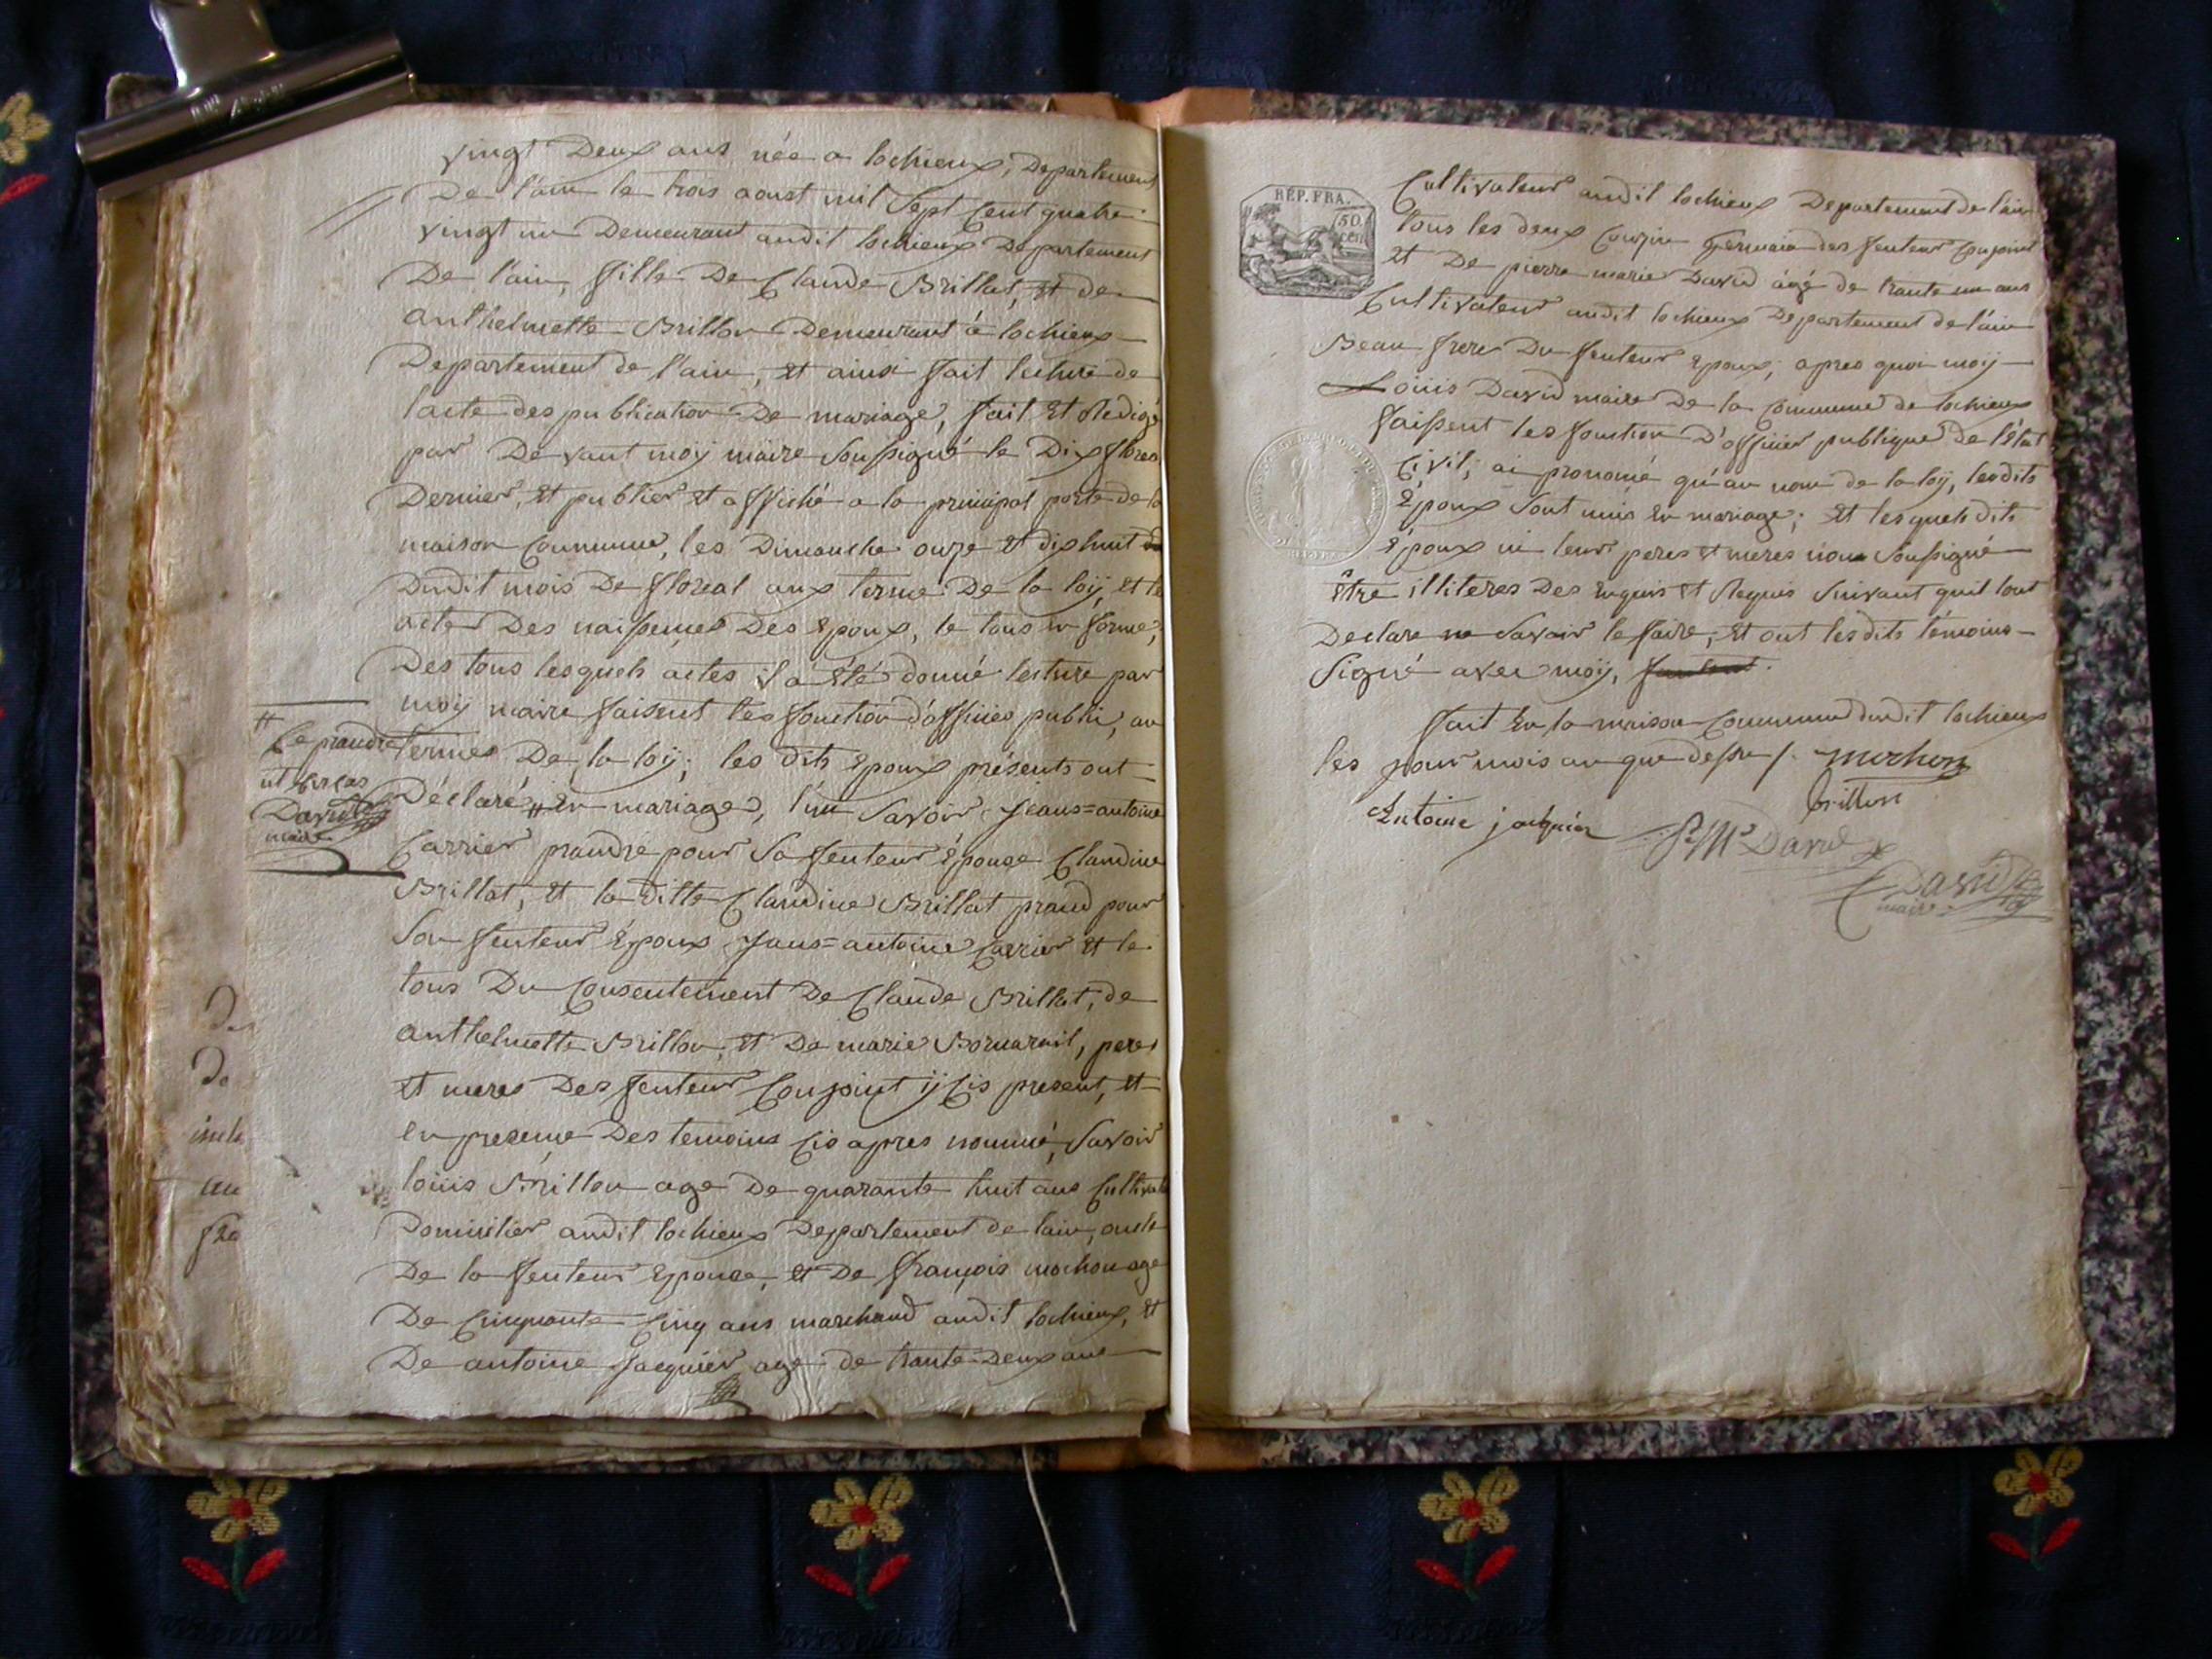 vingt Deux ans née a lochieux, Departement
De l'ain le trois aoust mil Sept Cent quatre
vingt un Demeurant audit lochieux Departement
De l'ain, fille De Claude Brillat, et de
anthelmette Brillon Demeurant à lochieux
Departement de l'ain, et ainsi fait lecture de
l'acte des publication De mariage, fait et Rédigé
par Devant moij maire Soussigné le Dix floreal
Dernier, et publier et affiché a la principal porte de la
maison Commune, les Dimanche onze et dixhuit
Dudit mois De floreal aux terme De la loij, et le
acte Des naissences Des Epoux, le tous en forme,
Des tous lesquels actes il a été donné lecture par
moij maire faisent les fonction d'officies public, au
termes De la loij; les dits Epoux présents ont
Déclaré # en mariage, l'un Savoir Jeans=antoine
Carrier prandre pour Sa futeur épouse Claudine
Brillat, et la ditte Claudine Brillat prand pour
Son futeur Epoux Jans=antoine Carrier et le
tous Du Consentement De Claude Brillat, de
anthelmette Brillon, et De marie peres
et meres Des futeur Conjoint ij Cis present, et
en presence Des temoins Cis apres nommé, Savoir
loüis Brillon age De quarante huit ans
Domicilier audit lochieux Departement de lain, oncle
De la futeur Epouse, et De françois mochon age
De Cinquante Cinq ans marchand audit lochieux, et
De antoine Jacquier age de trante Deux ans
#
Se prandre
David
maire
De
De
au
REP. FRA.
50
CEN
Cultivateur audit lochieux Departement de l'ain
tous les deux Couzin Germain des futeur Conjoint
et De pierre marie David ágé de trante un ans
Cultivateur audit lochieux Departement de l'ain
Beau frere Du futeur Epoux; apres quoi moij
Loüis David maire De la Commune de lochieux
faissent les fonction D'officier publique de l'Etat
Civil; ai prononcé qu'au nom de la loij, lesdits
Epoux Sont unis en mariage; et lesquels dits
Epoux ni leur peres et meres non Soussigné
être illiteres Des Enquis et Requis Suivant quil tout
Declare ne Savoir le faire, et ont lesdits témoins
Signé avec moij,
fait En la maison Commune dudit lochieux
les jour mois an que dessu /. mochon
brillon
Antoine jacquier P M David
David
maire